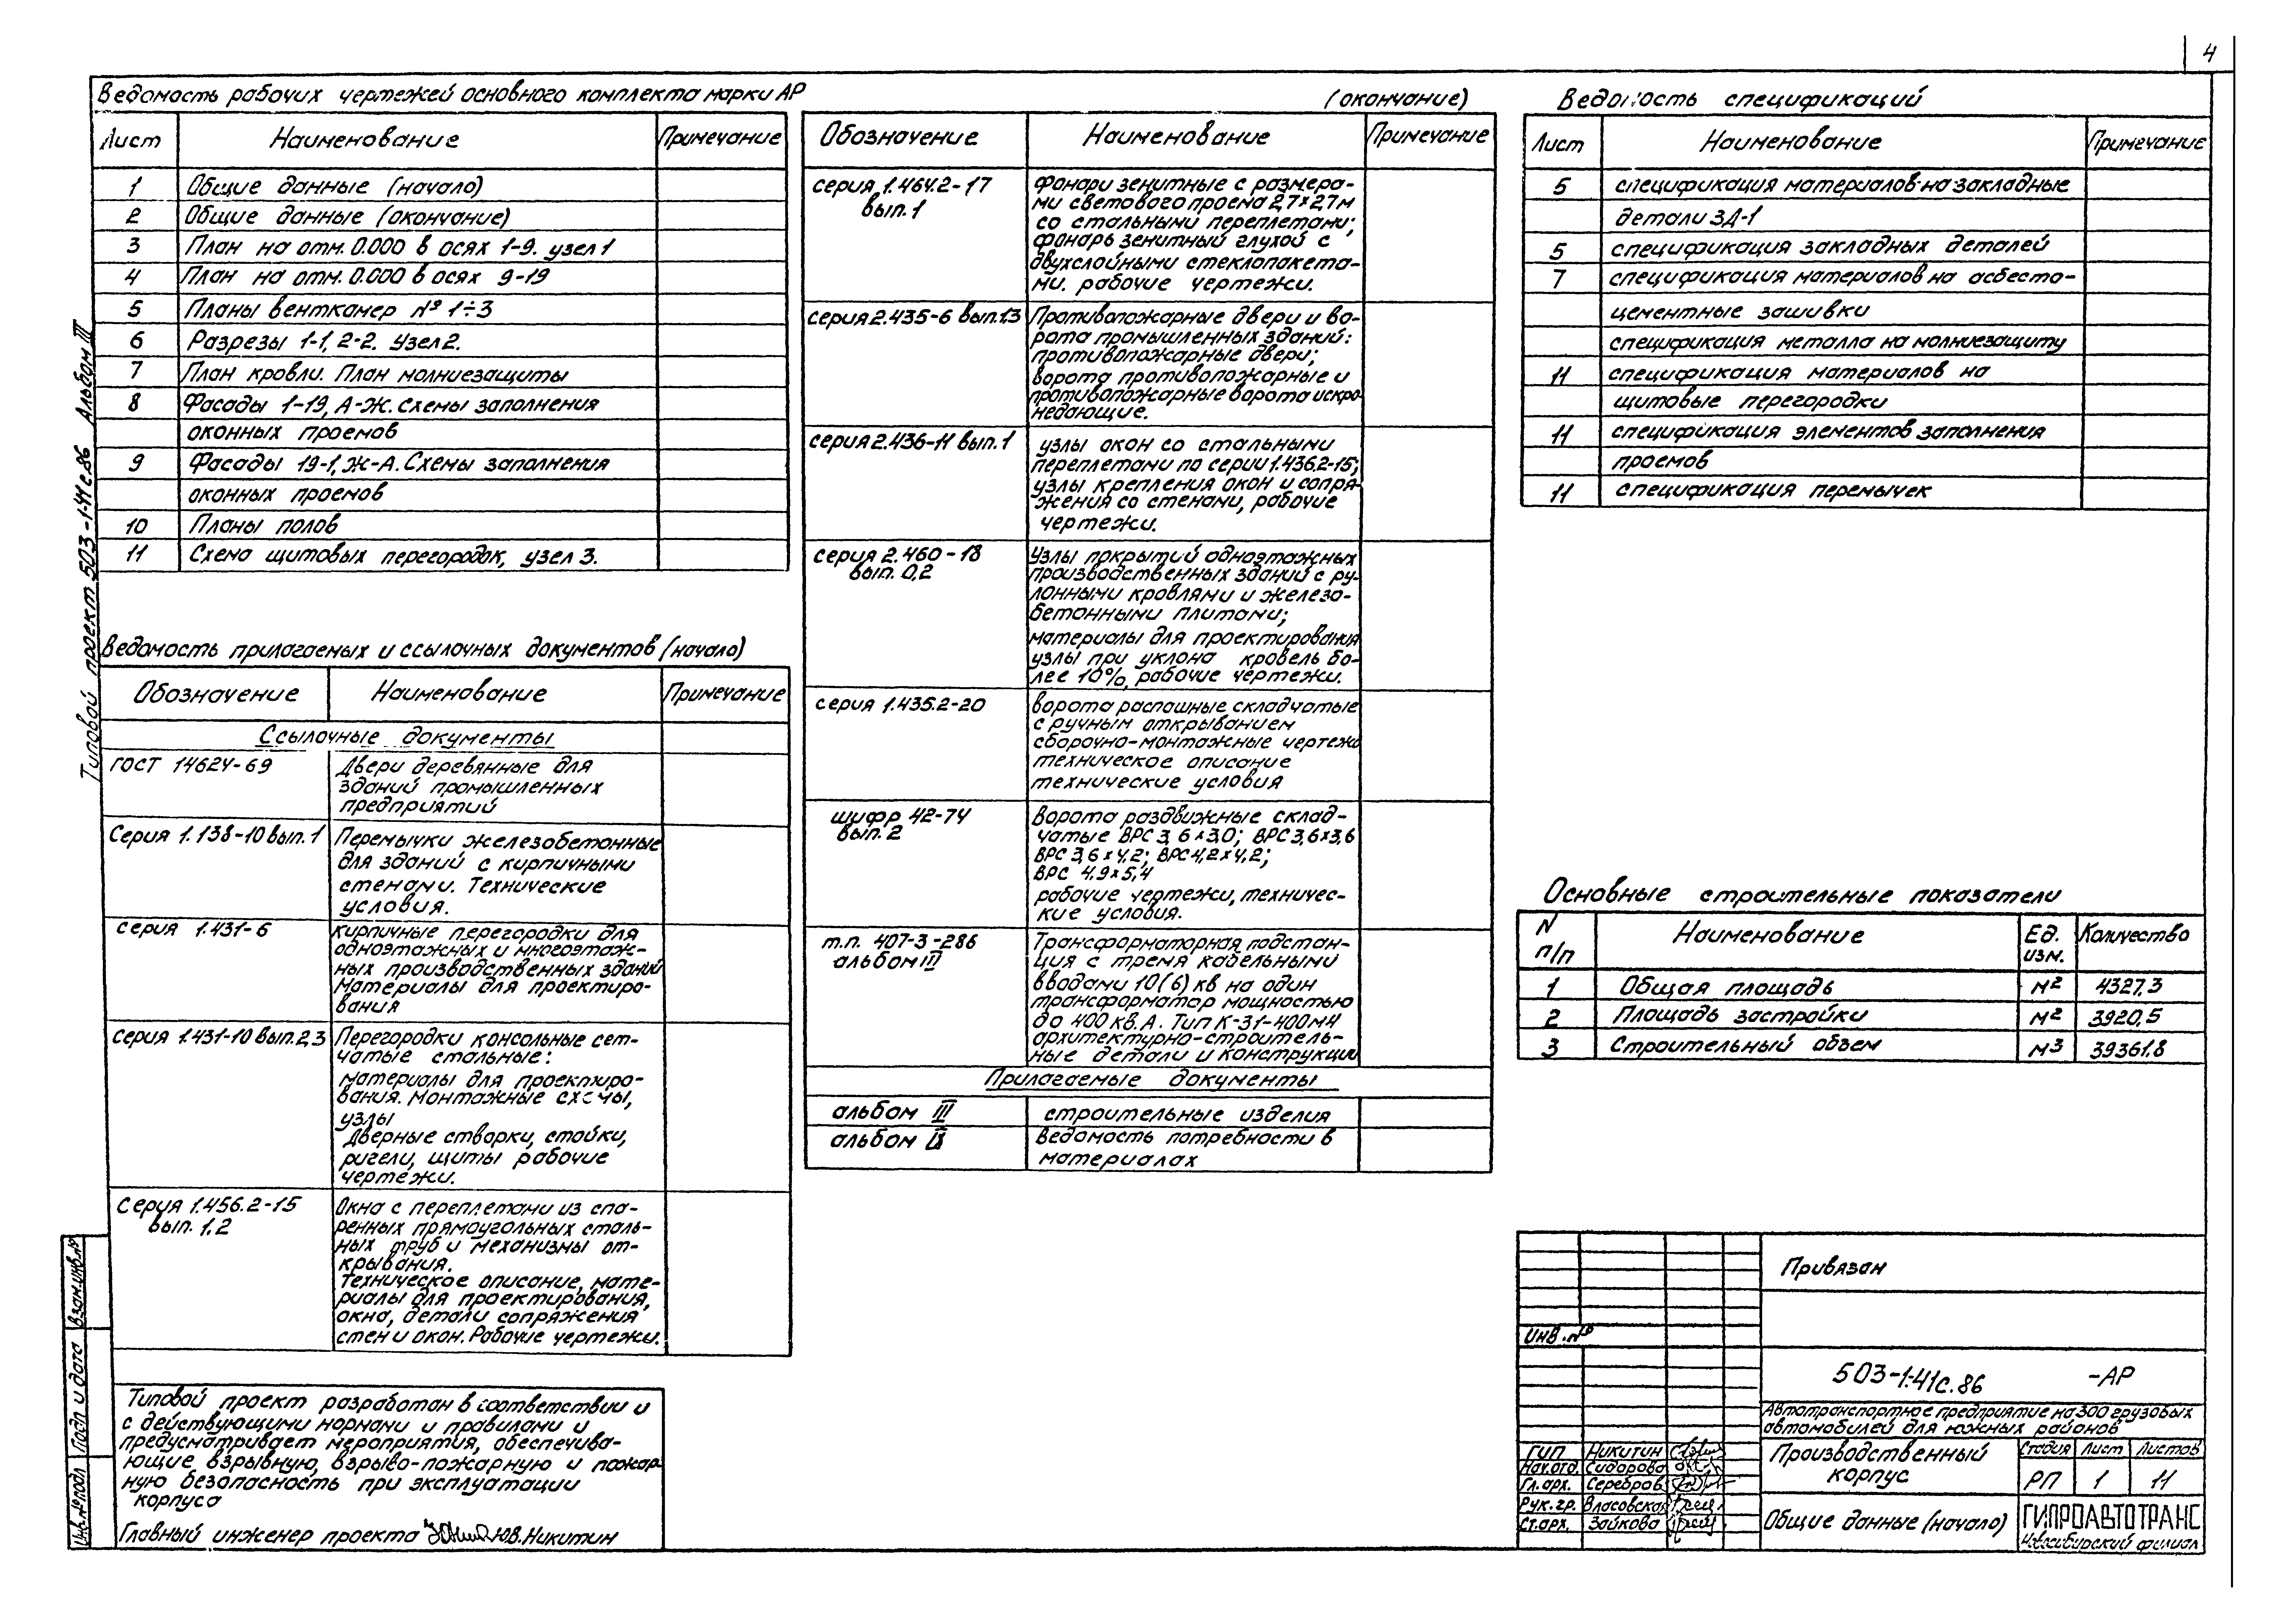 4
Ведомость рабочих чертежей основного комплекта марки АР
Лист Наименование Примечание
1 Общие данные (начало)
2 Общие данные (окончание)
3 План на отм. 0.000 в осях 1-9. узел 1
4 План на отм. 0.000 в осях 9-19
5 Планы венткамер № 1÷3
6 Разрезы 1-1, 2-2. Узел 2.
7 План кровли. План молниезащиты
8 Фасады 1-19, А-Ж. Схемы заполнения
оконных проемов
9 Фасады 19-1, Ж-А. Схемы заполнения
оконных проемов
10 Планы полов
11 Схема щитовых перегородок, узел 3.
Ведомость прилагаемых и ссылочных документов (начало)
Обозначение Наименование Примечание
Ссылочные документы
ГОСТ 14624-69 Двери деревянные для
зданий промышленных
предприятий
Серия 1.138-10 вып. 1 Перемычки железобетонные
для зданий с кирпичными
стенами. Технические
условия.
серия 1.431-6 кирпичные перегородки для
одноэтажных и многоэтаж-
ных производственных зданий
Материалы для проектиро-
вания
серия 1.431-10 вып. 2,3 Перегородки консольные сет-
чатые стальные:
материалы для проектиро-
вания. Монтажные схемы,
узлы
Дверные створки, стойки,
ригели, щиты рабочие
чертежи.
Серия 1.456.2-15
вып. 1,2
Окна с переплетами из спа-
ренных прямоугольных сталь-
ных труб и механизмы от-
крывания.
Техническое описание, мате-
риалы для проектирования,
окна, детали сопряжения
стен и окон. Рабочие чертежи.
Типовой проект разработан в соответствии и
с действующими нормами и правилами и
предусматривает мероприятия, обеспечива-
ющие взрывную, взрыво-пожарную и пожар
ную безопасность при эксплуатации
корпуса
Главный инженер проекта Ю.В. Никитин
(окончание)
Обозначение Наименование Примечание
серия 1.464.2-17
вып. 1
Фонари зенитные с размера-
ми светового проема 2,7×2,7м
со стальными переплетами;
фонарь зенитный глухой с
двухслойными стеклопакета-
ми. рабочие чертежи.
серия 2.435-6 вып. 1,3 Противопожарные двери и во-
рота промышленных зданий:
противопожарные двери;
ворота противопожарные и
противопожарные ворота искро
недающие.
серия 2.436-11 вып. 1 узлы окон со стальными
переплетами по серии 1.436.2-15;
узлы крепления окон и сопря-
жения со стенами, рабочие
чертежи.
серия 2.460-18
вып. 0,2
Узлы пкрытий одноэтажных
производственных зданий с ру-
лонными кровлями и железо-
бетонными плитами;
материалы для проектирования
узлы при уклона кровель бо-
лее 10%, рабочие чертежи.
серия 1.435.2-20 ворота распашные складчатые
с ручным открыванием
сборочно-монтажные чертежи
техническое описание
технические условия
шифр 42-74
вып. 2
Ворота раздвижные склад-
чатые ВРС 3,6×3,0; ВРС 3,6×3,6
ВРС 3,6×4,2; ВРС 4,2×4,2;
ВРС 4.9×5,4
рабочие чертежи, техничес-
кие условия.
т.п. 407-3-286
альбом III
Трансформаторная подстан-
ция с тремя кабельными
вводами 10(6) кв на один
трансформатор мощностью
до 400 кв.А. Тип К-31-400м4
архитектурно-строитель-
ные детали и конструкции
Прилагаемые документы
альбом III строительные изделия
альбом IX Ведомость потребности в
материалах
Ведомость спецификаций
Лист Наименование Примечание
5 спецификация материалов на закладные
детали ЗД-1
5 спецификация закладных деталей
7 спецификация материалов на асбесто-
цементные зашивки
спецификация металла на молниезащиту
11 спецификация материалов на
щитовые перегородки
11 спецификация элементов заполнения
проемов
11 спецификация перемычек
Основные строительные показатели
N п/п Наименование Ед. изм. Количество
1 Общая площадь м² 4327,3
2 Площадь застройки м² 3920,5
3 Строительный обзем м³ 39361.8
Привязан
Инв. №
503-1-41с.86 -АР
Автотранспортное предприятие на 300 грузовых
автомобилей для южных районов
ГИП Никитин
Нач.отд. Сидорова
Гл.арх. Серебров
Рук.гр. Власовская
Ст.арх. Зайкова
Производственный
корпус
Стадия Лист Листов
РП 1 11
Общие данные (начало)
ГИПРОАВТОТРАНС
Новосибирский филиал
Типовой проект 503-1-41с.86 Альбом III
Инв.№подл Подп и дата Взам.инв.№